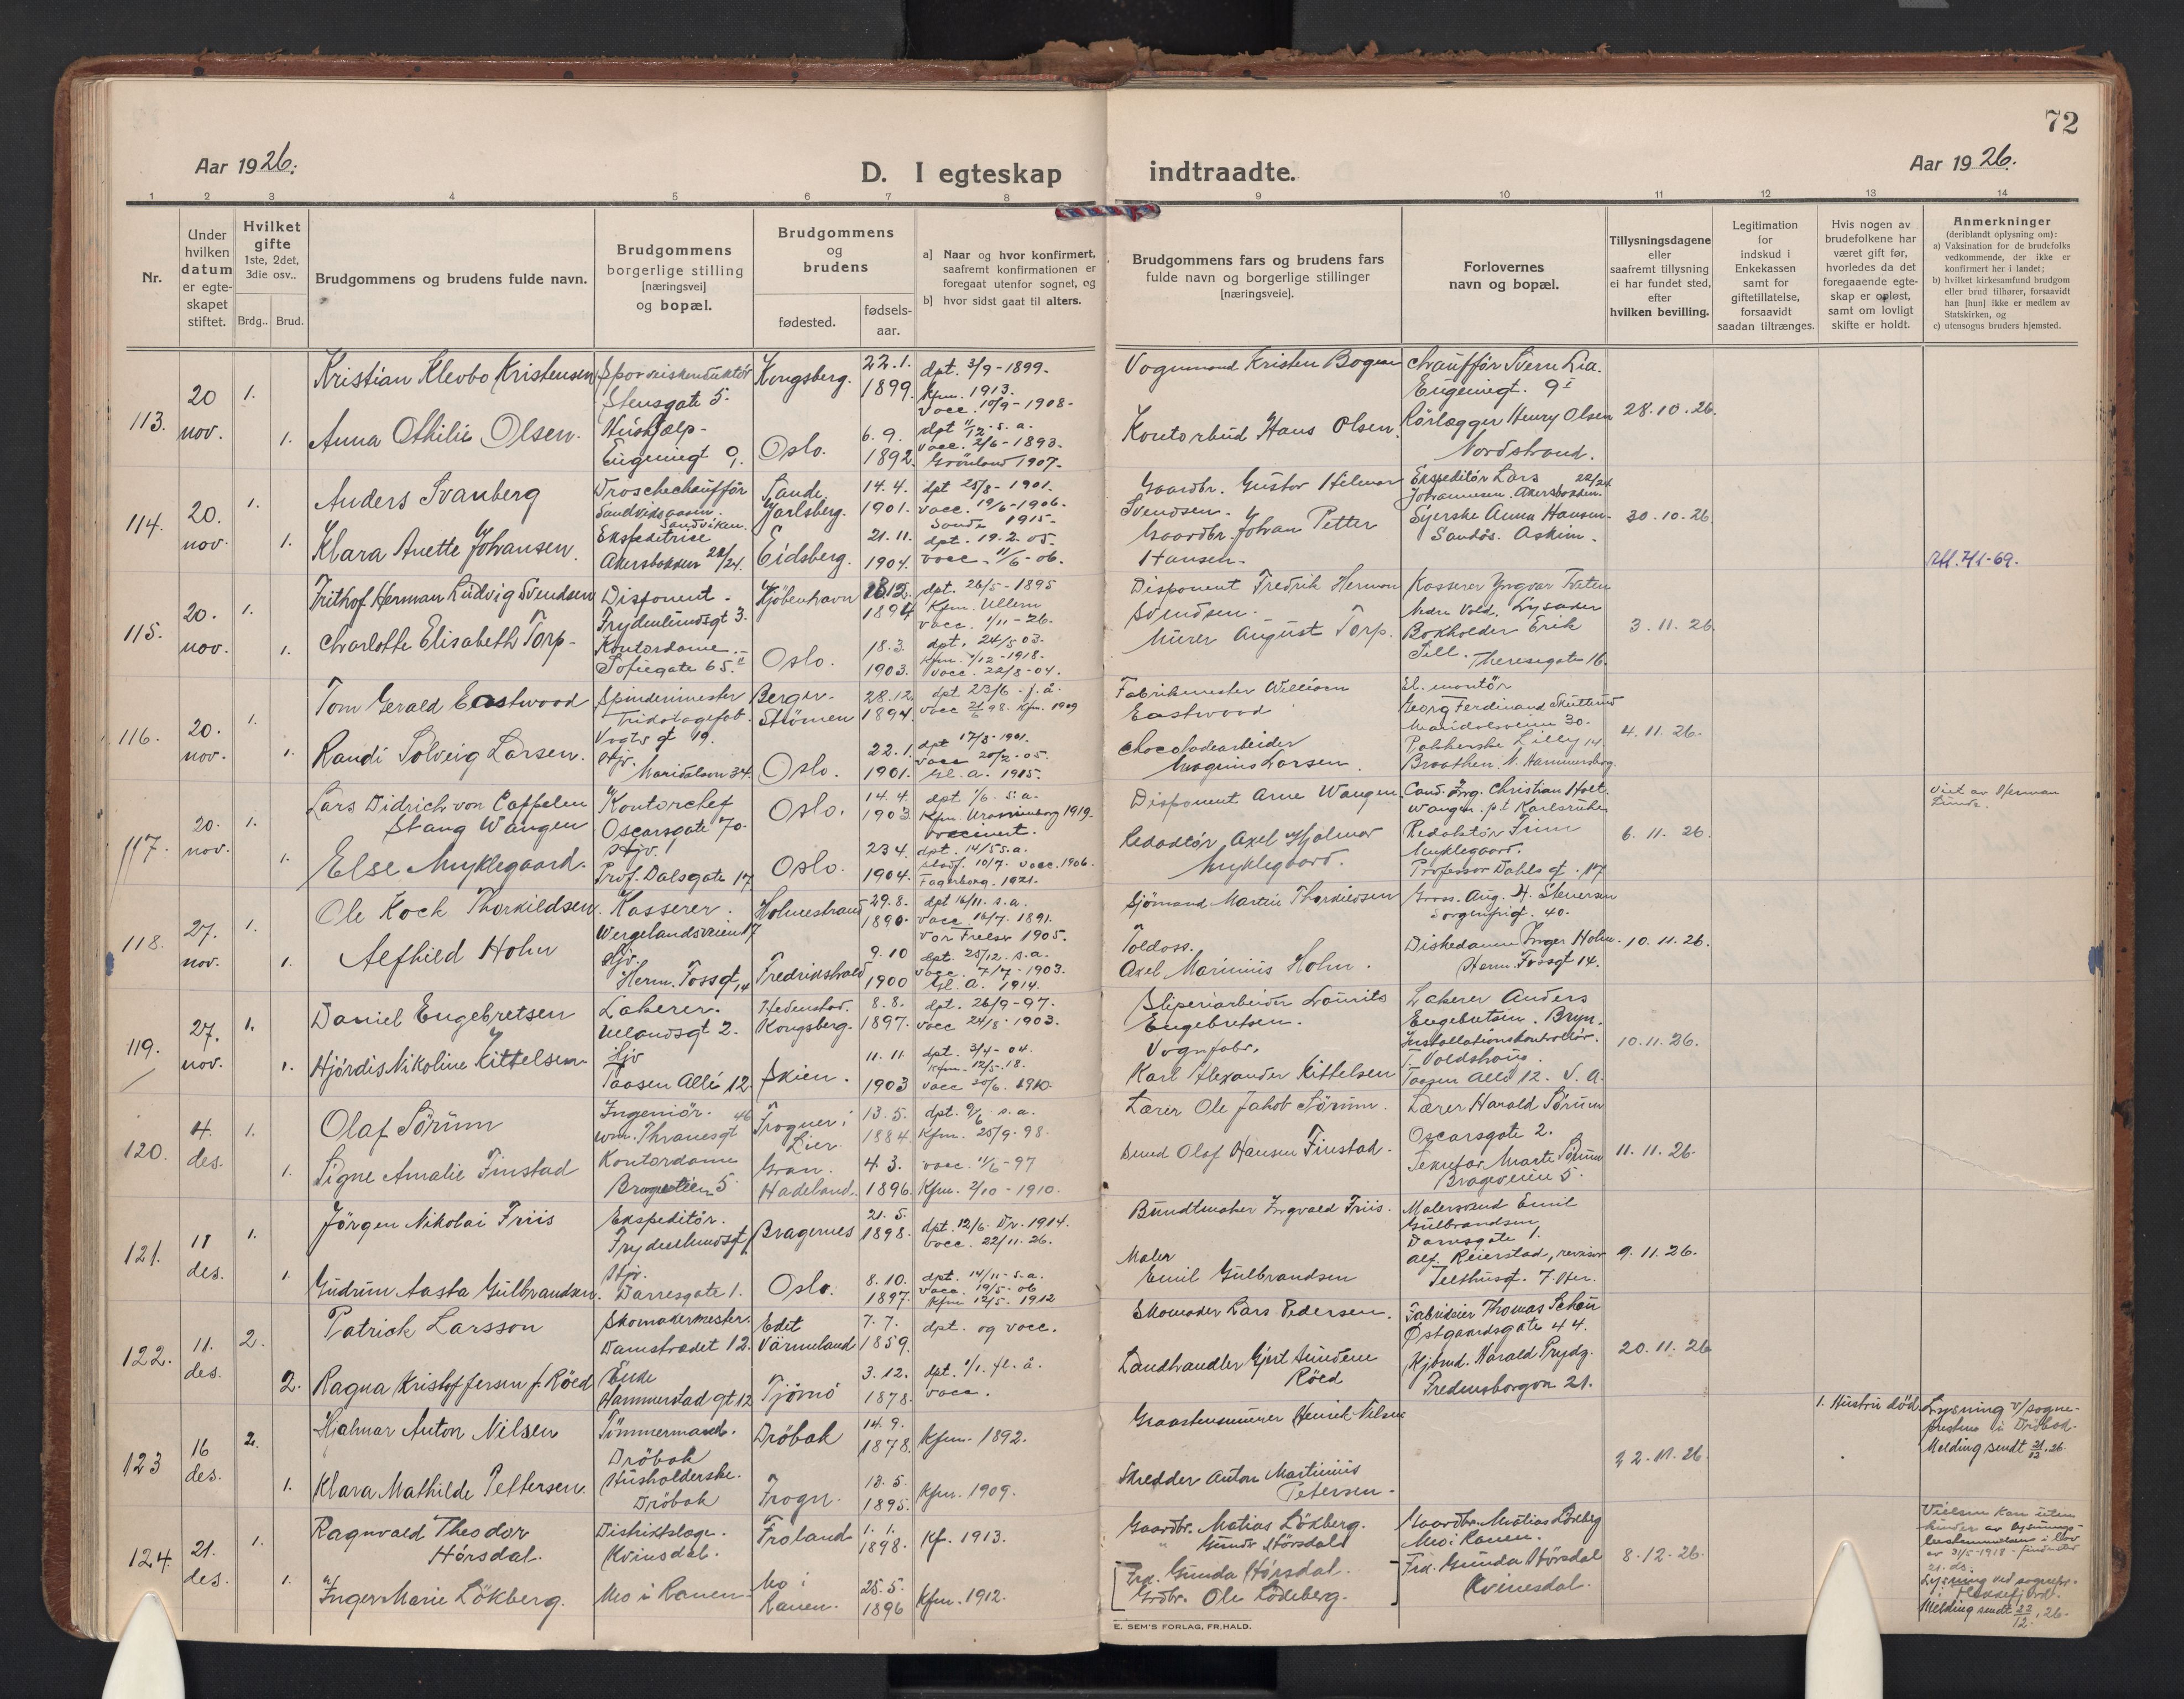 72
Aar 1926.
D. I egteskap indtraadte.
Aar 1926.
1 2 3 4 5 6 7 8 9 10 11 12 13 14
Nr.
Under hvilken datum er egteskapet stiftet.
Hvilket gifte
1ste, 2det, 3die osv..
Brdg.. Brud.
Brudgommens og brudens fulde navn.
Brudgommens borgerlige stilling [næringsvei] og bopæl.
Brudgommens og brudens
fødested.
fødsels-aar.
a] Naar og hvor konfirmert, saafremt konfirmationen er foregaat utenfor sognet, og
b] hvor sidst gaat til alters.
Brudgommens fars og brudens fars fulde navn og borgerlige stillinger [næringsveie].
Forlovernes navn og bopæl.
Tillysningsdagene eller saafremt tillysning ei har fundet sted, efter hvilken bevilling.
Legitimation for indskud i Enkekassen samt for giftetillatelse, forsaavidt saadan tiltrænges.
Hvis nogen av brudefolkene har været gift før, hvorledes da det foregaaende egteskap er opløst, samt om lovligt skifte er holdt.
Anmerkninger
(deriblandt oplysning om):
a) Vaksination for de brudefolks vedkommende, der ikke er konfirmert her i landet;
b) hvilket kirkesamfund brudgom eller brud tilhører, forsaavidt han [hun] ikke er medlem av Statskirken, og
c) utensogns bruders hjemsted.
113. 20 nov. 1.
Kristian Klevbo Kristensen
Stensgate 5.
Kongsberg. 22.1. 1899.
dpt. 3/9-1899.
Kfm. 1913.
Vacc. 10/9-1908-
Vognmand Kristen Bogen
Chauffør Sverre Lia.
Eugeniegt. 9
28.10.26.
1. Anna Othilie Olsen.
Hushjælp-
Eugeniegt 9.
Oslo. 6.9. 1892.
vacc. 2/6-1893.
Grønland 1907-
Kontorbud Hans Olsen.
Rørlægger Henry Olsen
Nordstrand.
114. 20. nov. 1.
Anders Svanberg
Droschechauffør
Sandviken.
Sande Jarlsberg. 14.4. 1901.
dpt 25/8-1901.
vacc. 19/6-1906.
Sande 1915-
Gaardbr. Gustav Helmer
Svendsen.
Ekspeditør Lars
Johannesen. Akersbakken. 22/24
30.10.26.
1. Klara Anette Johansen.
Ekspeditrice
Akersbakken 22/24.
Eidsberg. 21.11. 1904.
dpt. 19.2.05-
vacc. 11/6-06.
Gaardbr. Johan Petter
Hansen-
Syerske Anna Hansen-
Sandås. Askim.
115. 20. nov. 1.
Frithof Herman Ludvig Svendsen
Disponent.
Frydenlundsgt 3.
Kjøbenhavn 1894
dpt. 26/5-1895
Kfm. Ullern
vacc. 1/11-26.
Disponent Fredrik Herman
Svendsen.
Kasserer Yngvar Tveten
Nedre Vold. Lysaker
3.11.26.
1. Charlotte Elisabeth Torp-
Kontordame.
Sofiegate 65.
Oslo. 18.3. 1903.
dpt. 24/5 03.
Kfm. 1/12-1918.
Vacc. 22/8-04.
Murer August Torp.
Bokholder Erik
Sell. Theresegate 16.
Rtl. 741-69.
116. 20. nov. 1.
Tom Gerald Eastwood
Spinderimester
Trikotagefab.
Vogts gt 19.
Berger-
Strømmen 28.12. 1894.
dpt. 23/6. f.å.
Kfm. 1909
Fabrikmester William
Eastwood
El. montør
Georg Ferdinand Skutterud
Maridalsveien 30.
4.11.26.
1. Randi Solveig Larsen.
Hjv.
Maridalsvn 34.
Oslo. 22.1 1901.
dpt 17/3-1901.
vacc 20/2-05.
Gl. a. 1915.
Chocoladearbeider
Magnus Larsen.
Pakkerske Lilly
Braathen. N. Hammersborg. 14.
117. 20. nov. 1.
Lars Didrich von Cappelen
Stang Wangen
Kontorchef
Oscarsgate 70-
Oslo. 14.4. 1903.
dpt 1/6. s.a.
Kfm. Uranienborg 1919.
vaccinert.
Disponent Arne Wangen
Cand. Ing. Christian Holt.
Wangen. p.t Karlsruhe
6.11.26.
Viet av Herman
Lunde.
1. Else Myklegaard.
Hjv.
Prof. Dalsgate 17
Oslo. 23 4. 1904.
dpt. 14/5 s.a.
vacc. 1906.
Fagerborg-1921.
Redaktør Axel Hjalmar
Myklegaard.
Redaktør Finn
Myklegaard.
Professor Dahls gt. 17
118. 27. nov. 1.
Ole Koch Thorkildsen.
Kasserer.
Wergelandsveien 17
Holmestrand 29.8. 1890.
dpt 16/11. s.a.
vacc 16/7. 1891.
Vor Frelser 1905.
Sjømand Martin Thorkildsen
Gross. Aug. H. Stenersen
Sorgenfrigt. 40.
10.11.26.
1. Alfhild Holm
Hjv.
Herm. Fossgt. 14
Fredrikshald 9.10 1900
dpt. 25/12. s.a.
vacc. 7/7-1903.
Gl. a. 1914.
Toldoss.
Axel Marinius Holm.
Diskedame Inger Holm.
Herm. Fossgt 14.
119. 27. nov. 1.
Daniel Engebretsen
Lakerer.
Uelandsgt 2.
Hedenstad.
Kongsberg. 8.8. 1897.
dpt. 26/9-97.
vacc 24/8-1903.
Sliperiarbeider Laurits
Engebretsen.
Lakerer Anders
Engebretsen. Bryn.
10.11.26.
1. Hjørdis Nikoline Kittelsen
Hjv
Taasen Allé 12.
Skien. 11.11. 1903
dpt. 3/4-04.
Kfm. 12/5-18.
vacc 20/6. 1910.
Vognfabr.
Karl Alexander Kittelsen
Installationskontrollør.
T. Voldshaug.
Taasen Allé 12. V.A.
120. 4. des. 1.
Olaf Sørum
Ingeniør.
Wm. Thranesgt 46
Frogner i
Lier. 13.5. 1884.
Kfm. 25/9-98.
Lærer Ole Jakob Sørum.
Lærer Harald Sørum
Oscarsgate 2.
11.11.26.
1. Signe Amalie Finstad
Kontordame
Brageveien 5
Gran.
Hadeland. 4.3. 1896.
vacc. 11/6-97
Kfm. 2/10-1910.
Smed Olaf Hansen Finstad.
Marte Sørum
Brageveien 5.
121. 11 des. 1.
Jørgen Nikolai Friis
Ekspeditør.
Frydenlundsgt.
Bragernes 21.5. 1898.
dpt. 12/6. Dr. 1914.
vacc. 22/11.26.
Bundtmaker Ingvald Friis.
Malersvend Emil
Gulbrandsen,
Darresgate 1.
9.11.26.
1. Gudrun Aasta Gulbrandsen.
Hjv.
Darresgate 1.
Oslo. 8.10. 1897.
dpt. 14/11-s.a.
vacc. 19/5-06
Kfm 12/5-1912
Maler
Emil Gulbrandsen
Alf. Reierstad, revisor
Telthusgt. 7. Her.
122. 11. des. 2.
Patrick Larsson
Skomakermester.
Damstrædet 12.
Edet
Värmeland 7.7. 1859.
dpt. og vacc.
Skomaker Lars Pedersen.
Fabrikeier Thomas Schau
Østgaardsgate 44.
20.11.26
2. Ragna Kristoffersen f. Røed
Enke
Hammerstad gt 12
Tjømø 3.12. 1878.
dpt. 1/1. fl. å.
vacc.
Landhandler Gjert Amundsen
Røed
Kjbmd. Harald Prydz.
Fredensborgvn 21.
123 16 des. 2.
Hjalmar Anton Nilsen
Tømmermand.
Drøbak
Drøbak 14.9. 1878.
Kfm. 1892.
Graastensmurer Henrik Nilsen
22.11.26.
1. Hustru død.
Lysning v/sogne-
presten i Drøbak-
Melding sendt 21/12.26.
1. Klara Mathilde Pettersen.
Husholderske.
Drøbak
Frogn. 13.5. 1895.
Kfm. 1909.
Skredder Anton Martinius
Petersen-
124. 21. des. 1.
Ragnvald Theodor
Hørsdal.
Distriktslæge.
Kvinesdal.
Froland 1.1. 1898.
Kf. 1913.
Gaardbr. Matias Løkberg.
" Gunder Hørsdal
Gaardbr. Matias Løkberg
Mo i Ranen.
8.12.26.
Vielsen kan uten
hinder av lysnings-
bestemmelsen i lov
av 31/5-1918-
21. ds.
Lysning ved sognepr.
Melding sendt 22/12.26-
1. Inger Marie Løkberg.
Mo i Ranen-
Mo i
Ranen. 25.5. 1896
Kfm. 1912.
[Frk. Gunda Hørsdal.
Grdbr. Ole Løkberg.]
Frk. Gunda Hørsdal
Kvinesdal.
E. SEM'S FORLAG, FR.HALD.